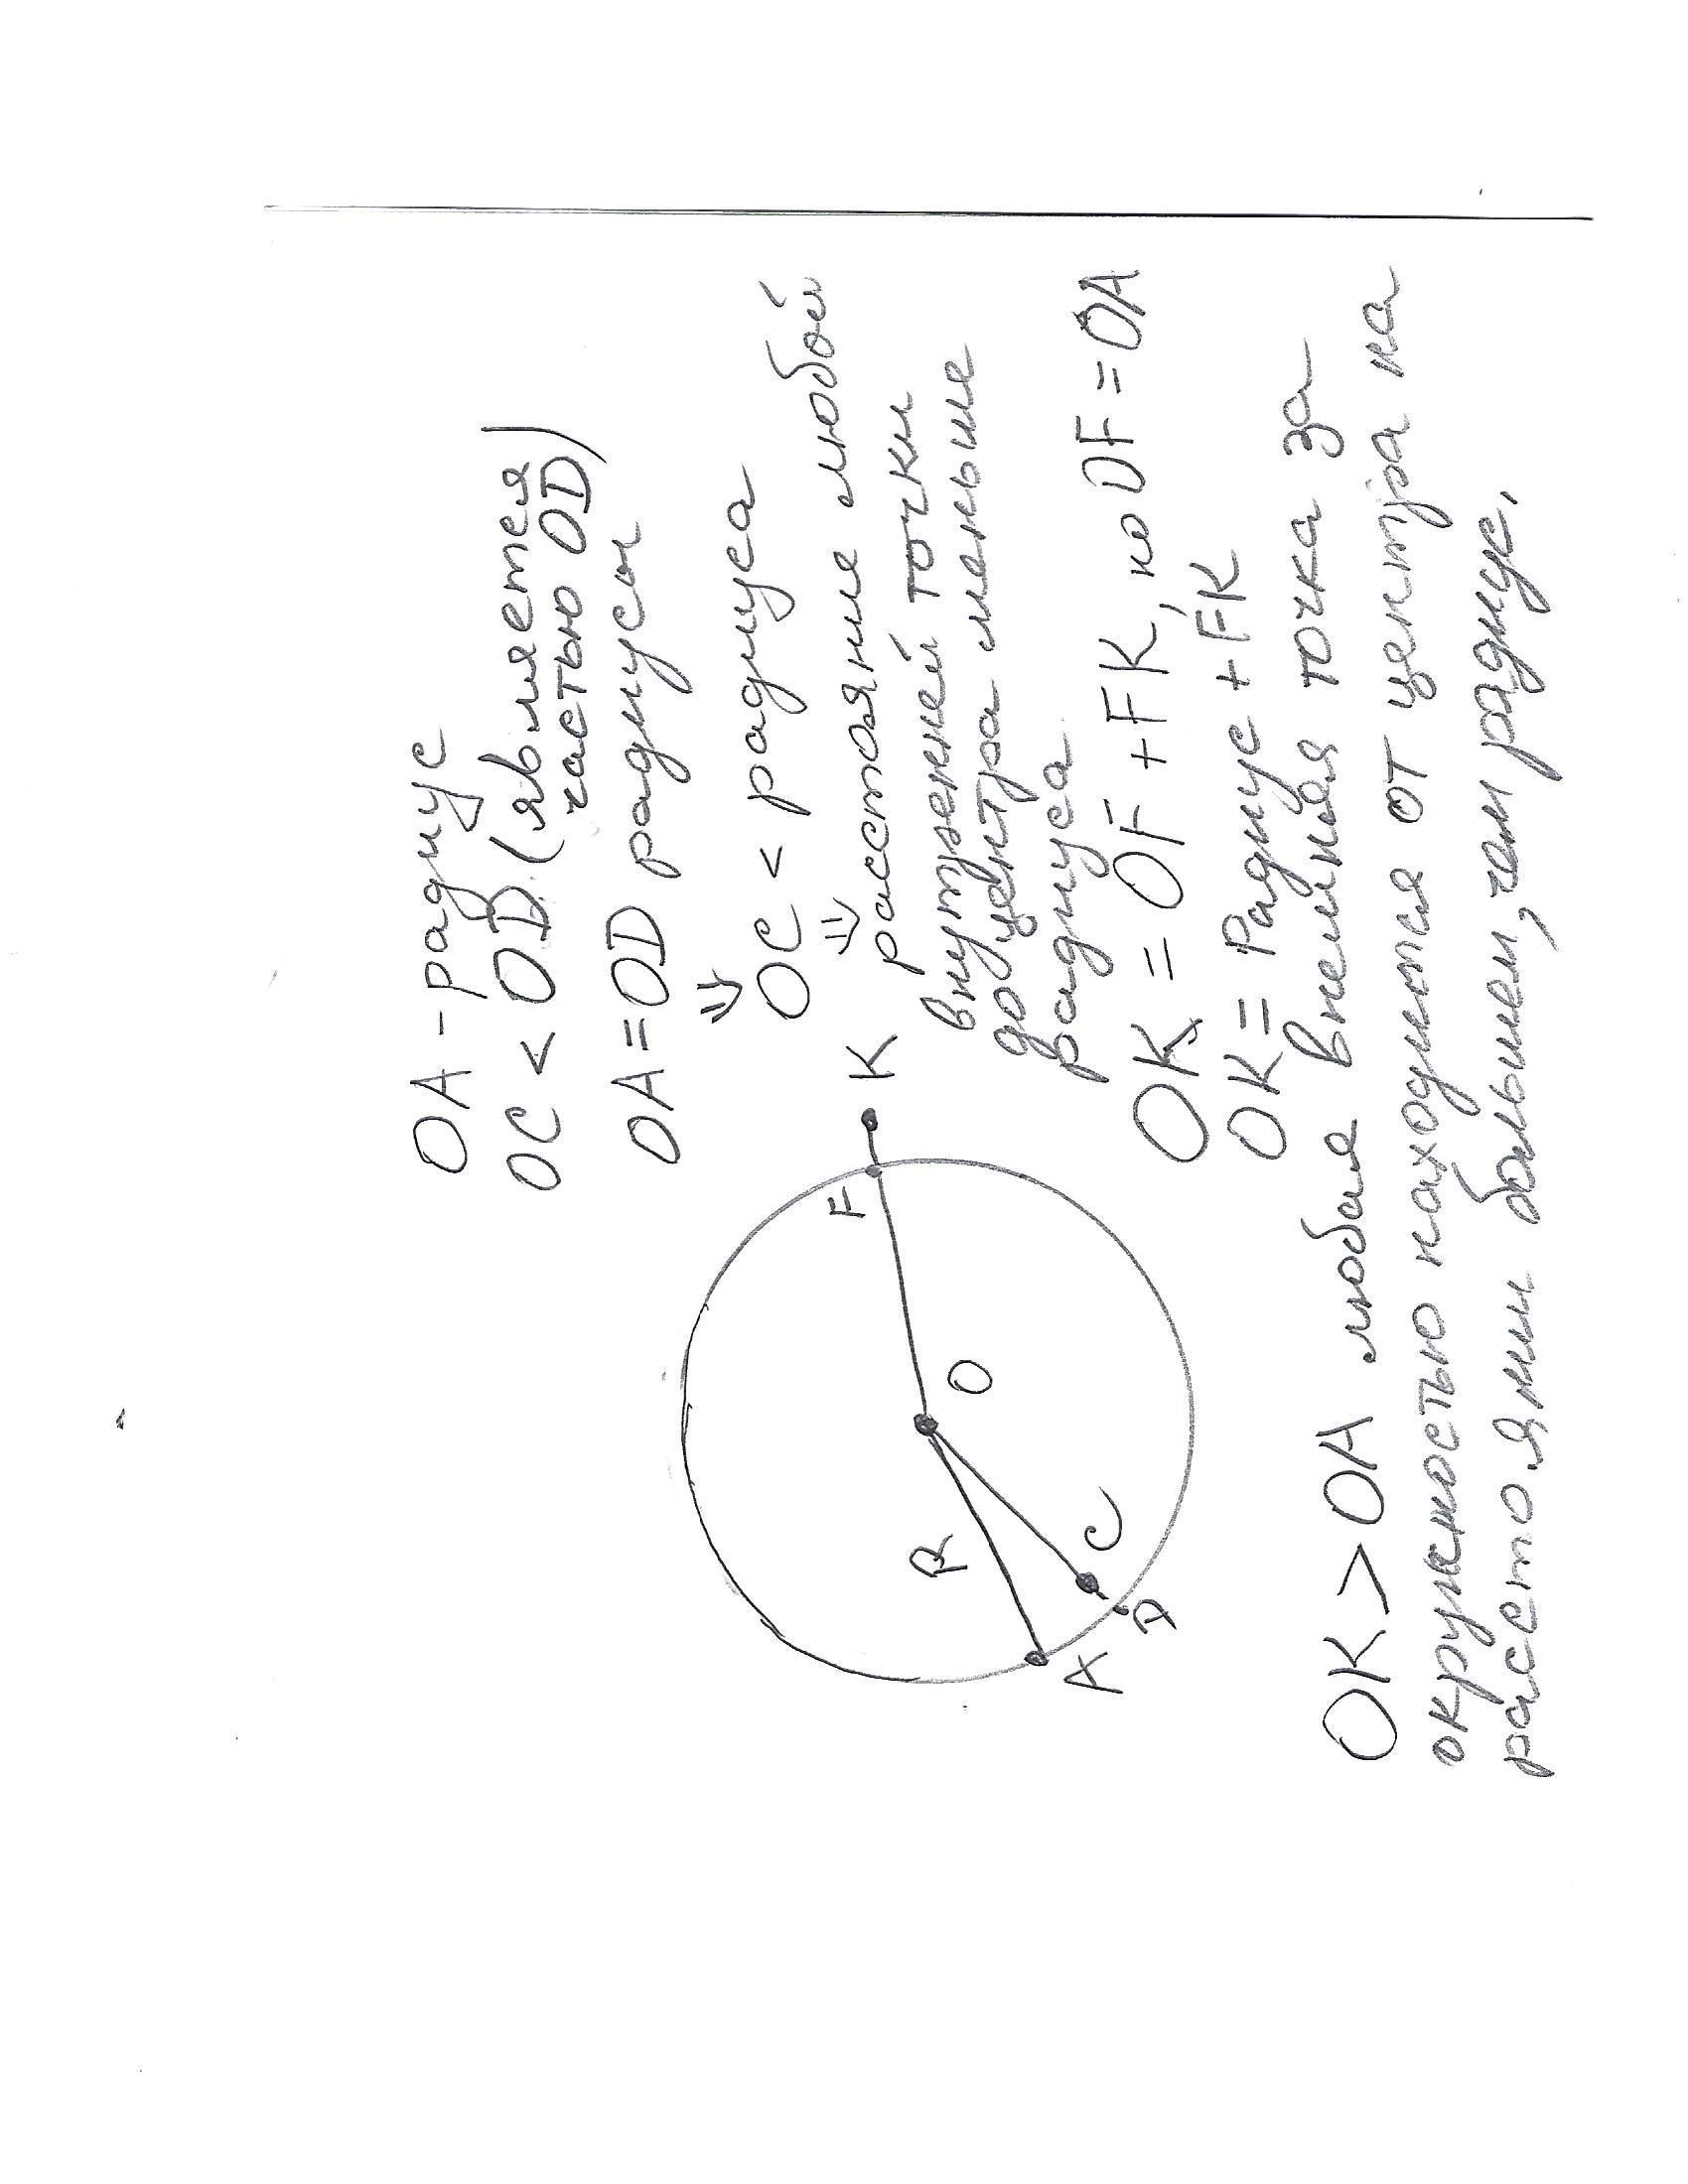 OA - радиус
OC < OD (является
частью OD)
OA = OD радиусы
⇓
OC < радиуса
⇓
расстояние любой
внутренней точки
до центра меньше
радиуса
OK = OF + FK, но OF = OA
OK = Радиус + FK
OK > OA любая внешняя точка за
окружностью находится от центра на
расстоянии большем, чем радиус.
K
F
O
R
C
A
D